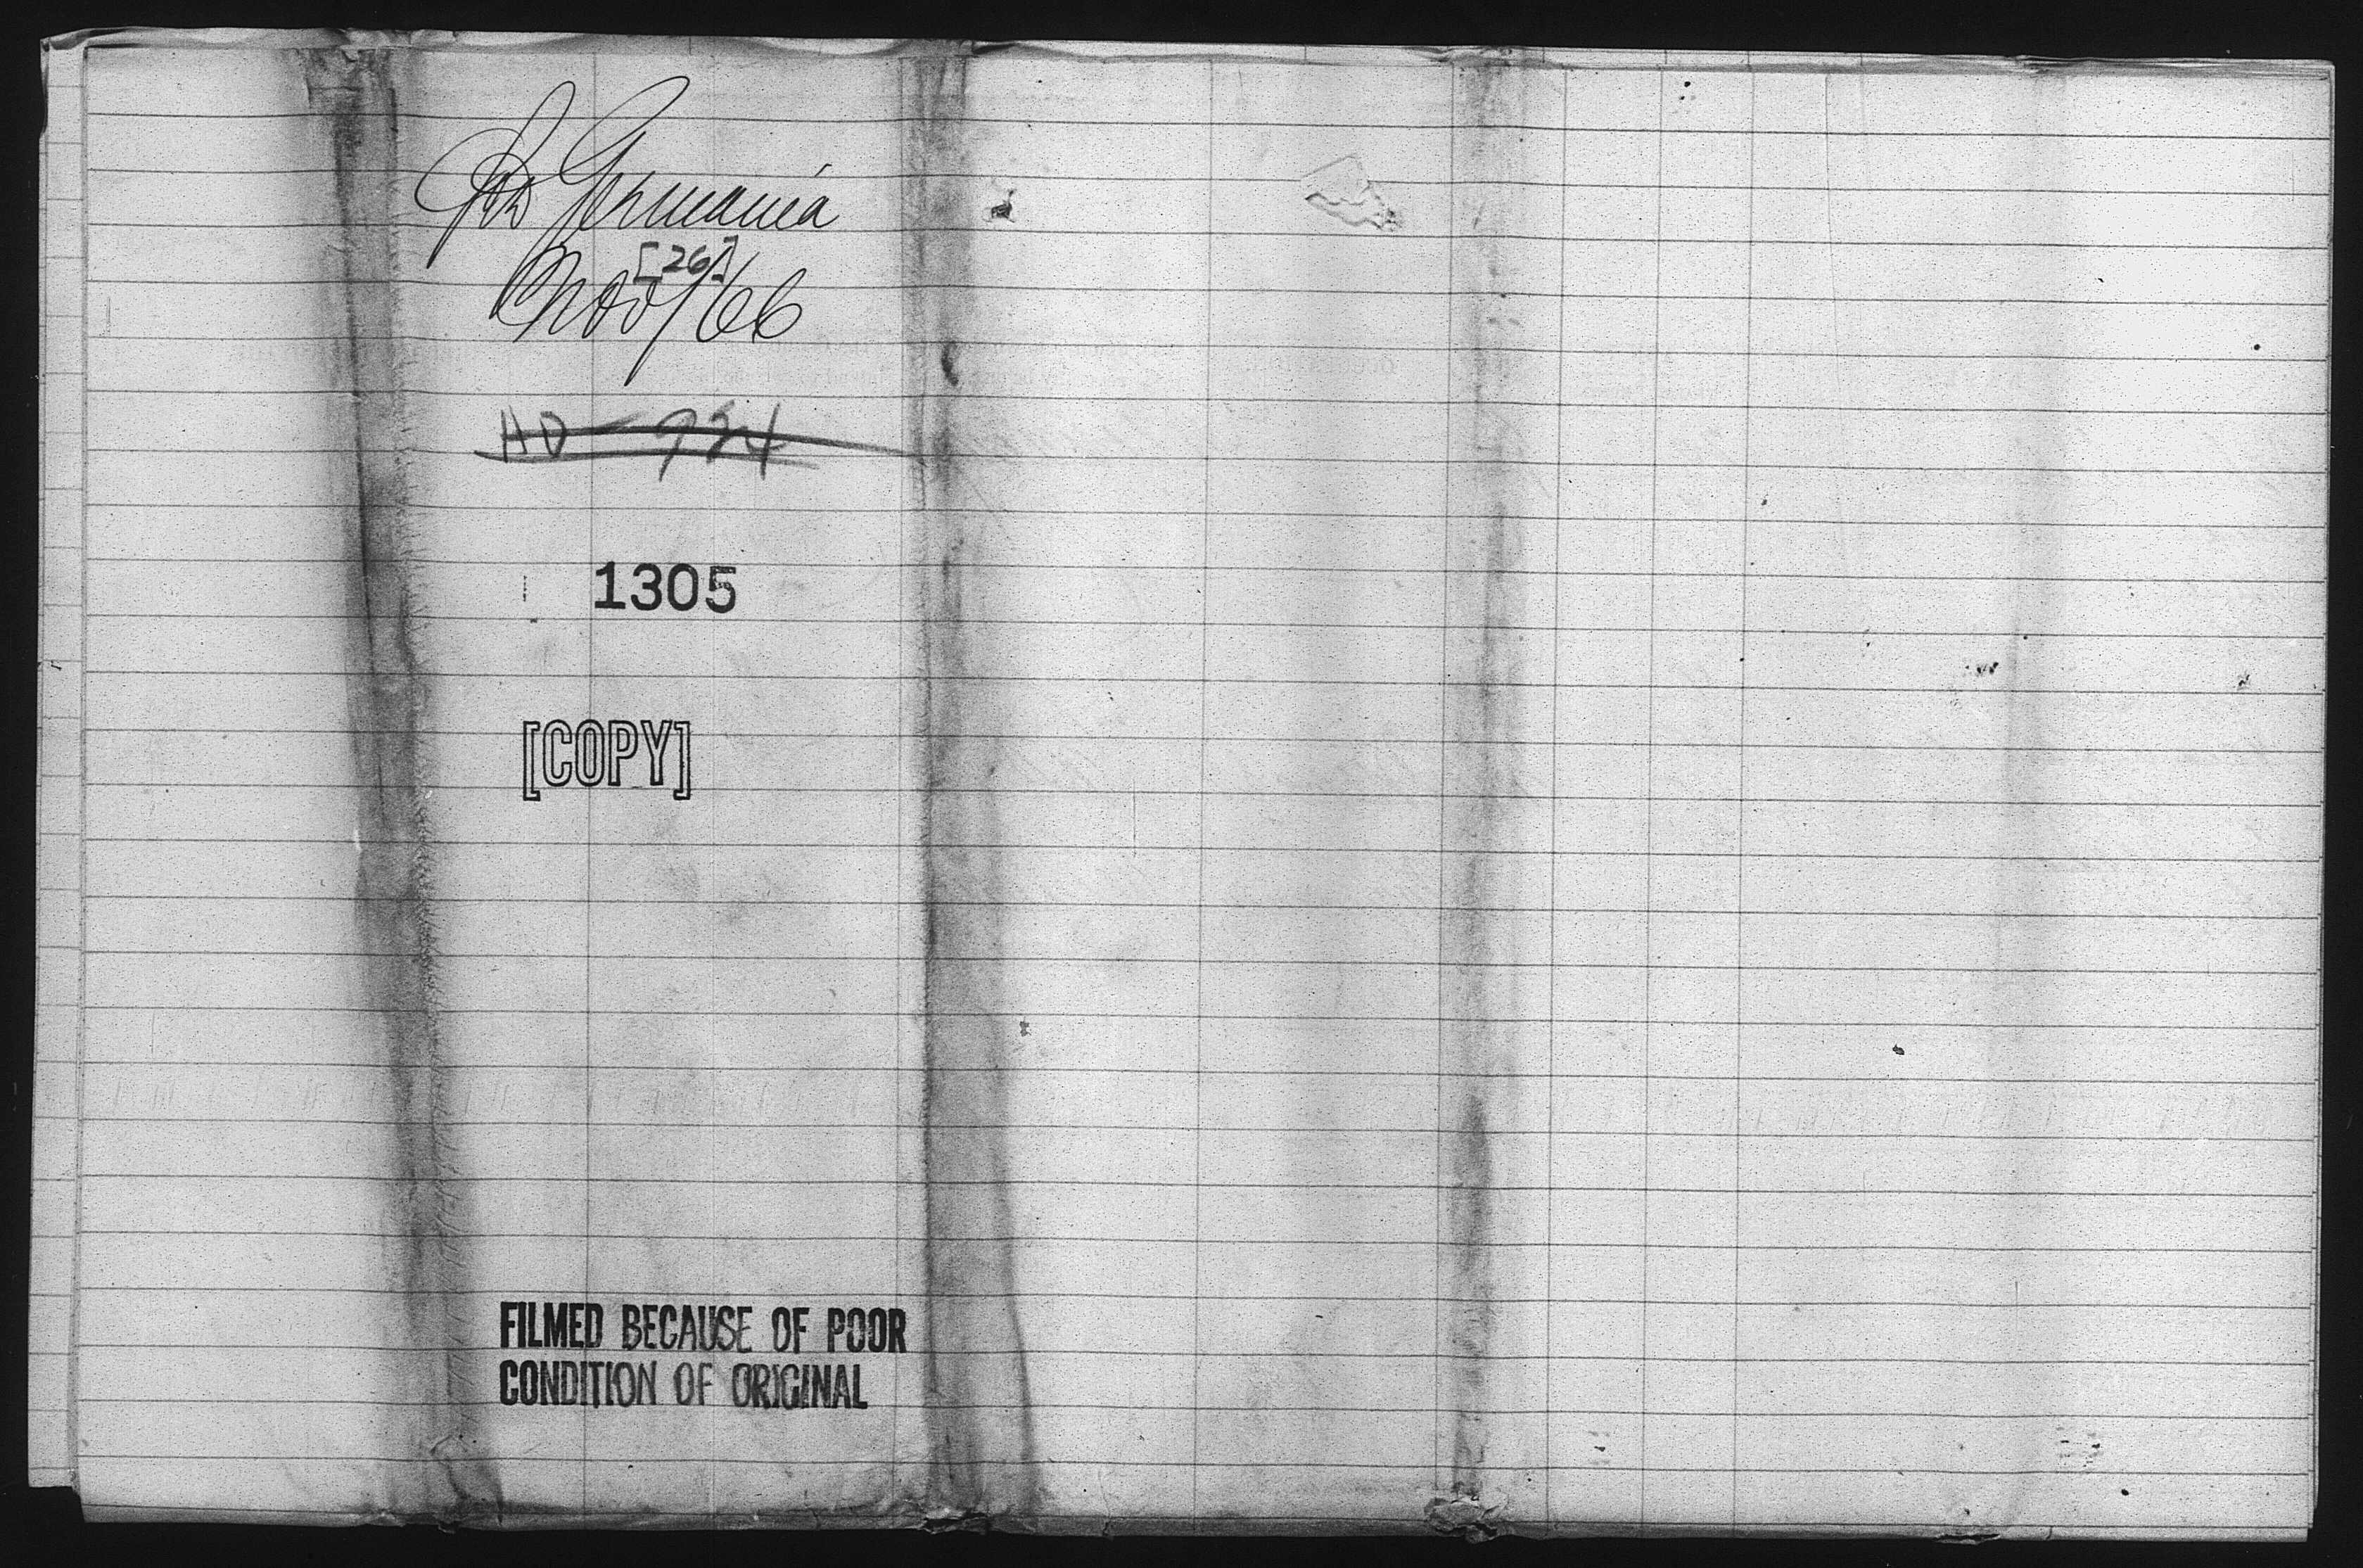 Germania
[26]
Nov/66
HD - 934
1305
[COPY]
FILMED BECAUSE OF POOR
CONDITION OF ORIGINAL